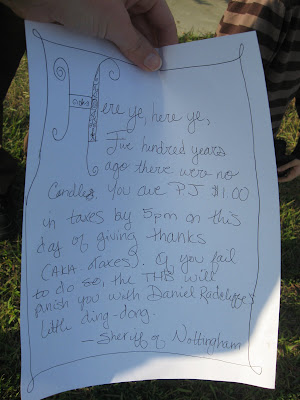 Here ye, here ye,
Five hundred years
ago there were no
Candles. You owe PJ $1.00
in taxes by 5pm on this
day of giving thanks
(AKA - Taxes). If you fail
to do so, the THS will
punish you with Daniel Radcliffe's
little ding-dong.
- Sheriff of Nottingham